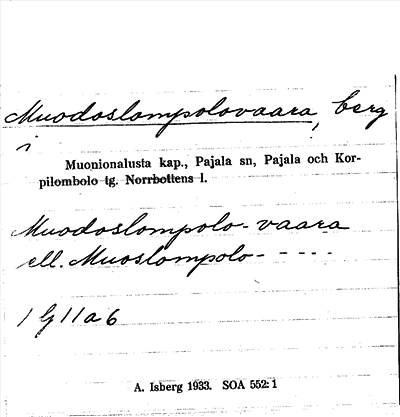 Muodoslompolovaara, berg
i
Muonionalusta kap., Pajala sn, Pajala och Kor-
pilombolo tg. Norrbottens l.
Muodoslompolo-vaara
ell. Muoslompolo- - - - -
1 lj 11 a 6
A. Isberg 1933. SOA 552:1